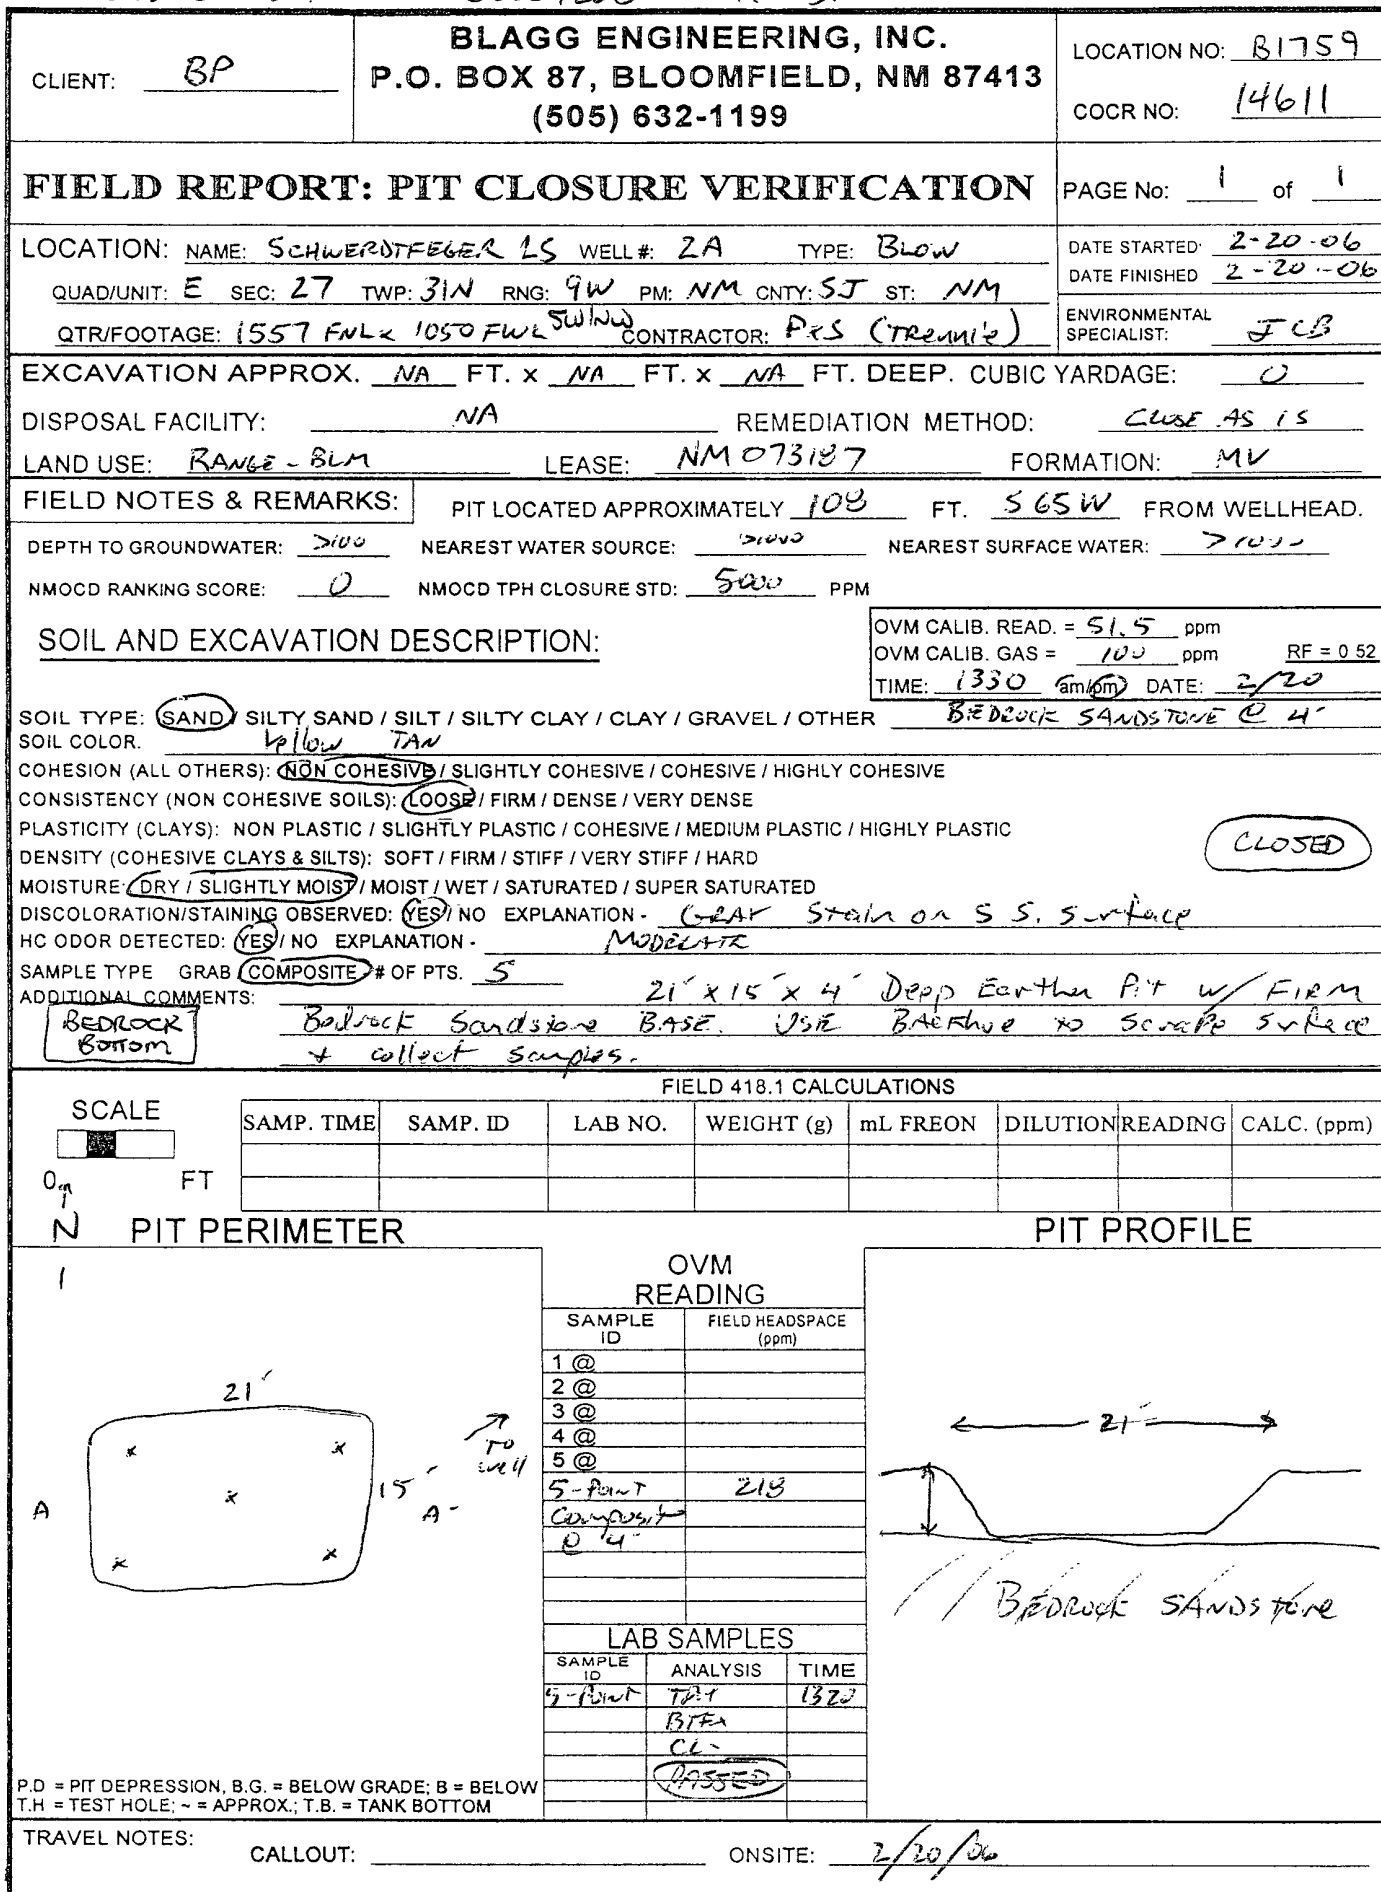 BLAGG ENGINEERING, INC.
P.O. BOX 87, BLOOMFIELD, NM 87413
(505) 632-1199
CLIENT: BP
LOCATION NO: B1759
COCR NO: 14611
FIELD REPORT: PIT CLOSURE VERIFICATION
PAGE No: 1 of 1
LOCATION: NAME: SCHWERDTFEGER LS WELL #: 2A TYPE: BLOW
DATE STARTED 2-20-06
DATE FINISHED 2-20-06
QUAD/UNIT: E SEC: 27 TWP: 31N RNG: 9W PM: NM CNTY: SJ ST: NM
QTR/FOOTAGE: 1557 FNL x 1050 FWL SW/NW CONTRACTOR: P&S (TRENNIE)
ENVIRONMENTAL
SPECIALIST: JCB
EXCAVATION APPROX. NA FT. x NA FT. x NA FT. DEEP. CUBIC YARDAGE: 0
DISPOSAL FACILITY: NA REMEDIATION METHOD: CLOSE AS IS
LAND USE: RANGE - BLM LEASE: NM 073187 FORMATION: MV
FIELD NOTES & REMARKS: PIT LOCATED APPROXIMATELY 108 FT. S65W FROM WELLHEAD.
DEPTH TO GROUNDWATER: >100 NEAREST WATER SOURCE: >1000 NEAREST SURFACE WATER: >1000
NMOCD RANKING SCORE: 0 NMOCD TPH CLOSURE STD: 5000 PPM
SOIL AND EXCAVATION DESCRIPTION:
OVM CALIB. READ. = 51.5 ppm
OVM CALIB. GAS = 100 ppm RF = 0 52
TIME: 1330 am/pm DATE: 2/20
SOIL TYPE: SAND / SILTY SAND / SILT / SILTY CLAY / CLAY / GRAVEL / OTHER BEDROCK SANDSTONE @ 4'
SOIL COLOR. Yellow TAN
COHESION (ALL OTHERS): NON COHESIVE / SLIGHTLY COHESIVE / COHESIVE / HIGHLY COHESIVE
CONSISTENCY (NON COHESIVE SOILS): LOOSE / FIRM / DENSE / VERY DENSE
PLASTICITY (CLAYS): NON PLASTIC / SLIGHTLY PLASTIC / COHESIVE / MEDIUM PLASTIC / HIGHLY PLASTIC
CLOSED
DENSITY (COHESIVE CLAYS & SILTS): SOFT / FIRM / STIFF / VERY STIFF / HARD
MOISTURE: DRY / SLIGHTLY MOIST / MOIST / WET / SATURATED / SUPER SATURATED
DISCOLORATION/STAINING OBSERVED: YES / NO EXPLANATION - GRAY Stain on S.S. Surface
HC ODOR DETECTED: YES / NO EXPLANATION - MODERATE
SAMPLE TYPE GRAB COMPOSITE # OF PTS. 5
ADDITIONAL COMMENTS: 21' x 15' x 4' Deep Earthen Pit w/ FIRM
BEDROCK Bottom
Bedrock Sandstone BASE. USE BACKhoe to Scrape Surface
+ collect samples.
FIELD 418.1 CALCULATIONS
SCALE
0 FT
SAMP. TIME SAMP. ID LAB NO. WEIGHT (g) mL FREON DILUTION READING CALC. (ppm)
N PIT PERIMETER
PIT PROFILE
OVM
READING
SAMPLE ID FIELD HEADSPACE (ppm)
1 @
2 @
3 @
4 @
5 @
5-Point 218
Composite
@ 4'
21'
15'
A
A'
To well
21'
BEDROCK SANDSTONE
LAB SAMPLES
SAMPLE ID ANALYSIS TIME
5-Point TPH 1320
BTEX
CL-
PASSED
P.D = PIT DEPRESSION, B.G. = BELOW GRADE; B = BELOW
T.H = TEST HOLE; ~ = APPROX.; T.B. = TANK BOTTOM
TRAVEL NOTES: CALLOUT: ONSITE: 2/20/06